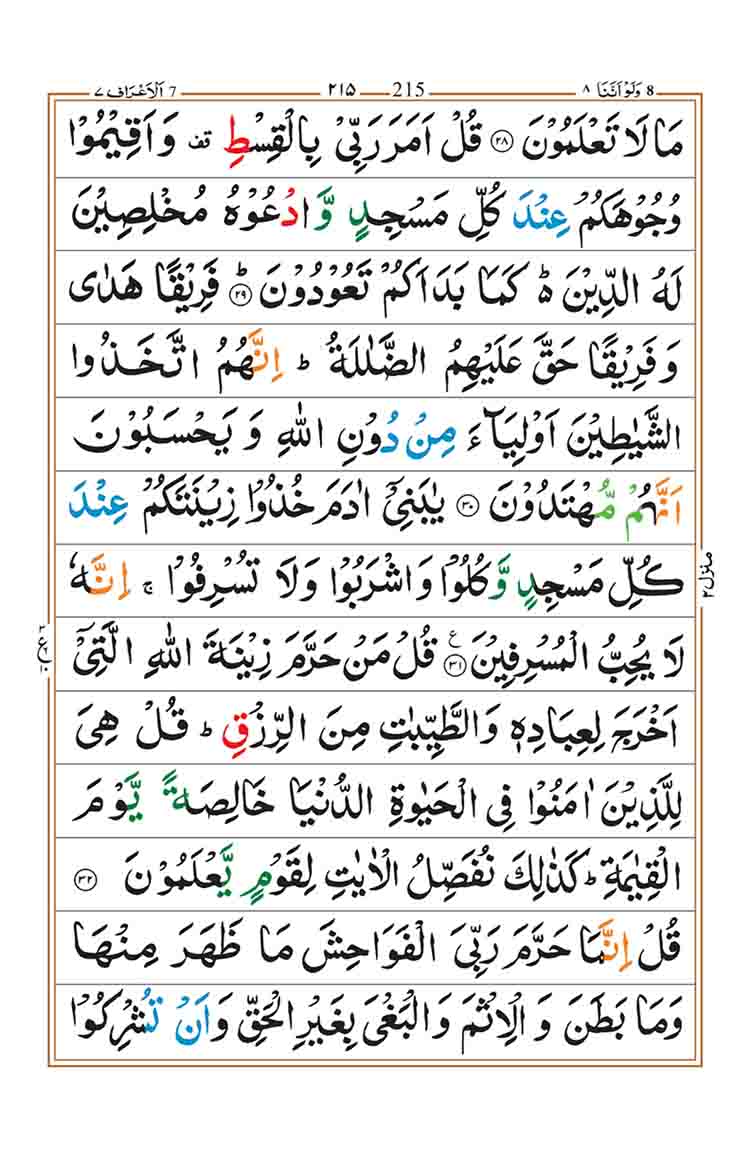 8 وَلَوْ اَنَّنَا ٨ 215 ٢١٥ 7 اَلْاَعْرَاف ٧
مَا لَا تَعْلَمُوْنَ ۝٢٨ قُلْ اَمَرَ رَبِّیْ بِالْقِسْطِ قف وَاَقِیْمُوْا
وُجُوْهَكُمْ عِنْدَ كُلِّ مَسْجِدٍ وَّادْعُوْهُ مُخْلِصِیْنَ
لَهُ الدِّیْنَ ؕ كَمَا بَدَاَكُمْ تَعُوْدُوْنَ ؕ ۝٢٩ فَرِیْقًا هَدٰی
وَفَرِیْقًا حَقَّ عَلَیْهِمُ الضَّلٰلَةُ ؕ اِنَّهُمُ اتَّخَذُوا
الشَّیٰطِیْنَ اَوْلِیَآءَ مِنْ دُوْنِ اللّٰهِ وَ یَحْسَبُوْنَ
اَنَّهُمْ مُّهْتَدُوْنَ ۝٣٠ یٰبَنِیْۤ اٰدَمَ خُذُوْا زِیْنَتَكُمْ عِنْدَ
كُلِّ مَسْجِدٍ وَّكُلُوْا وَاشْرَبُوْا وَلَا تُسْرِفُوْا ۚ اِنَّهٗ
لَا یُحِبُّ الْمُسْرِفِیْنَ ۝٣١ ع قُلْ مَنْ حَرَّمَ زِیْنَةَ اللّٰهِ الَّتِیْۤ
اَخْرَجَ لِعِبَادِهٖ وَالطَّیِّبٰتِ مِنَ الرِّزْقِ ؕ قُلْ هِیَ
لِلَّذِیْنَ اٰمَنُوْا فِی الْحَیٰوةِ الدُّنْیَا خَالِصَةً یَّوْمَ
الْقِیٰمَةِ ؕ كَذٰلِكَ نُفَصِّلُ الْاٰیٰتِ لِقَوْمٍ یَّعْلَمُوْنَ ۝٣٢
قُلْ اِنَّمَا حَرَّمَ رَبِّیَ الْفَوَاحِشَ مَا ظَهَرَ مِنْهَا
وَمَا بَطَنَ وَ الْاِثْمَ وَالْبَغْیَ بِغَیْرِ الْحَقِّ وَاَنْ تُشْرِكُوْا
منزل ٢